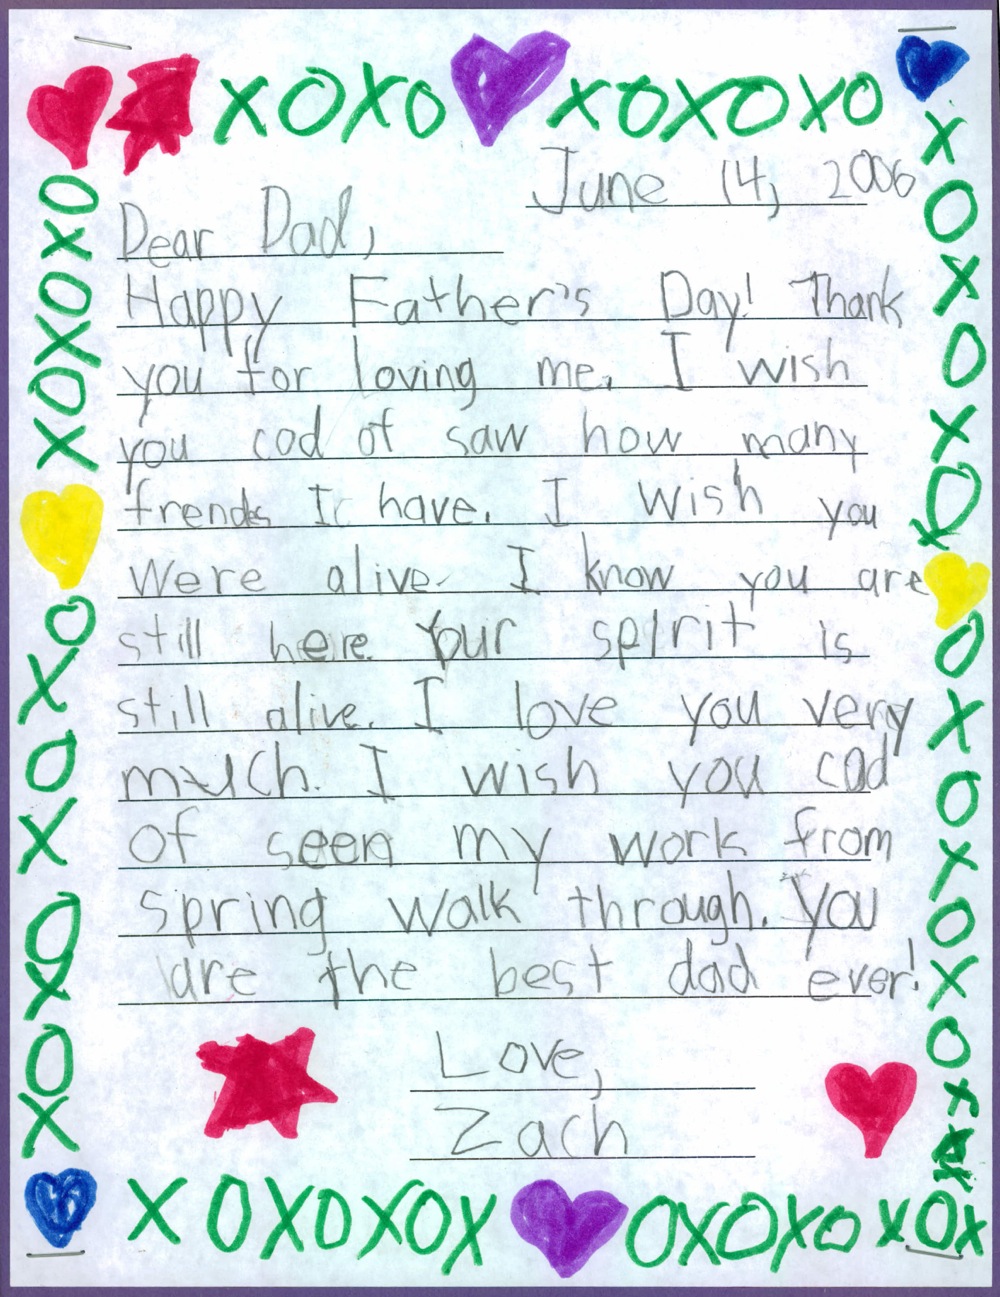 XOXO XOXOXO
June 14, 2006
Dear Dad,
Happy Father's Day! Thank
you for loving me. I wish
you cod of saw how many
frends I have. I wish you
were alive. I know you are
still here. Your spirit is
still alive. I love you very
much. I wish you cod
of seen my work from
spring walk through. You
are the best dad ever!
Love,
Zach
XOXOXOX OXOXO XOX